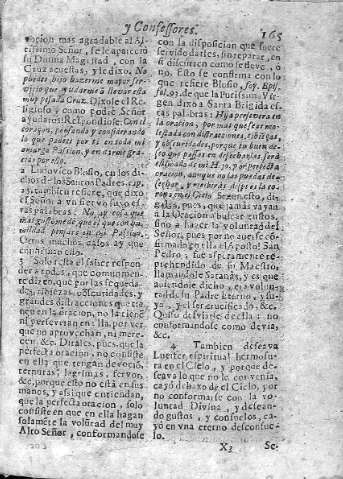 y Confessores.
165
vocion mas agradable al Al-
tissimo Señor, se le apareció
su Divina Magestad, con la
Cruz acuestas, y le dixo. No
puedes hijo hazerme mayor ser-
vicio que ayudarme à llevar esta
muy pesada Cruz. Dixole el Re-
ligioso y como podrè Señor
ayudaros? Respondiòse. Con el
coraçon, pensando y considerando
lo que padecì por ti en toda mi
amarga Passion, y en darme gra-
cias por ello.
Ludovico Blosio, en los di-
chos de los Santos Padres, cap.
tambien refiere, que dixo
el Señor à un siervo suyo es-
tas palabras: No, ay cosa que
Passion.
Otros muchos
3 Solo resta el saber respon-
der à todos, que comunmen-
te dizen, que por las sequeda-
des, tibiezas, obscuridades, y
grandes distracciones que tie-
nen en la oracion, no la tienen
ni perseveran en ella, por ver
que no aprovechan, ni mere-
cen, &c. Dirales, pues, que la
perfecta oracion, no consiste
en ella que tengan devoció,
ternuras, lagrimas, fervor,
&c. porque esto no está en sus
manos, y assi que entiendan,
que la perfecta oracion, solo
consiste en que en ella hagan
solaměte la volŭtad del muy
Alto Señor, conformandose
con la disposicion que fuere
servido darles, sin reparar, en
si discurren como se deve, ò
no. Esto se confirma con lo
que refiere Blosio,
que la Purissima Vir-
gen dixo à Santa Brigida es-
tas palabras: Hija persevera en
la oración, por mas que seas mo-
lestada con distracciones, tibiezas,
y obscuridades, porque tu buen de-
seo
oracion, aunque no las puedas de-
sechar, y meriràs despues la co-
rona en el Cielo. Segun esto, di-
gales, pues, que jamàs vayan
à la Oracion à buscar gustos,
sino à hazer la voluntad del
Señor, pues por no aver se con-
firmado en ella el Apostol San
Pedro, fue asperamente re-
prehendido de su Maestro,
llamandole Satanàs, y es que
aviendole dicho, era volun-
tad de su Padre Eterno, y su-
ya, el ser crucificado, &c.
Quiso desviarle de ella: no
conformandose como devia,
&c.
4 Tambien deseava
Luzifer espiritual hermosu-
ra en el Cielo, y porque de-
seava lo que no le convenia,
cayò debaxo de el Cielo, por
no conformarse con la vo-
luntad Divina, y desean-
do gustos, y consuelos, ca-
yò en una eterno desconsue-
lo.
X3 Se-